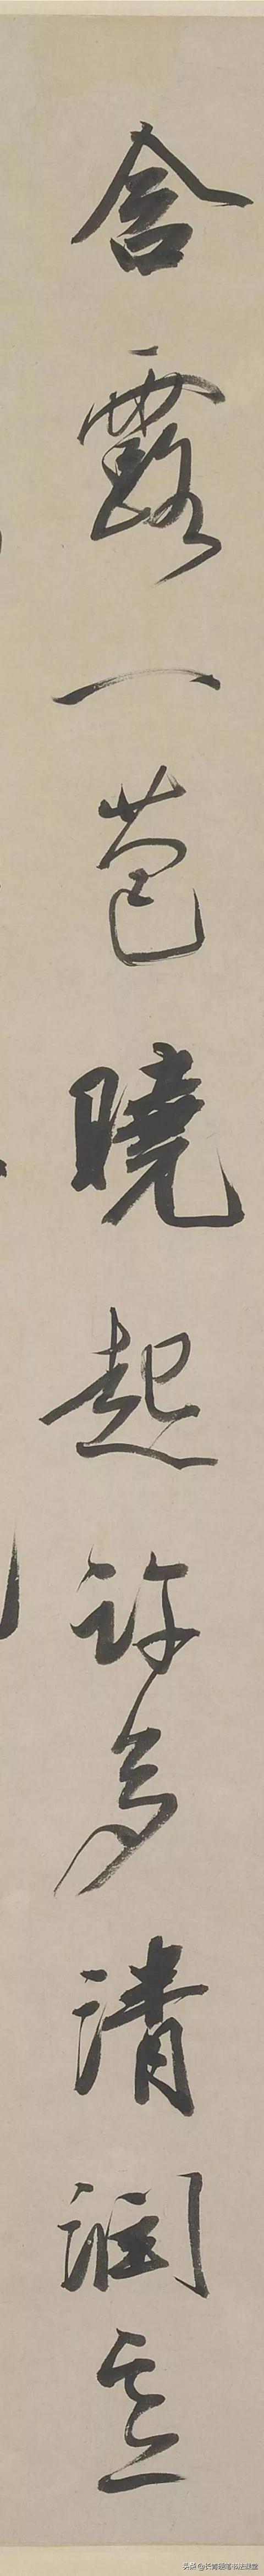 含露一苞曉起許多清潤
头条